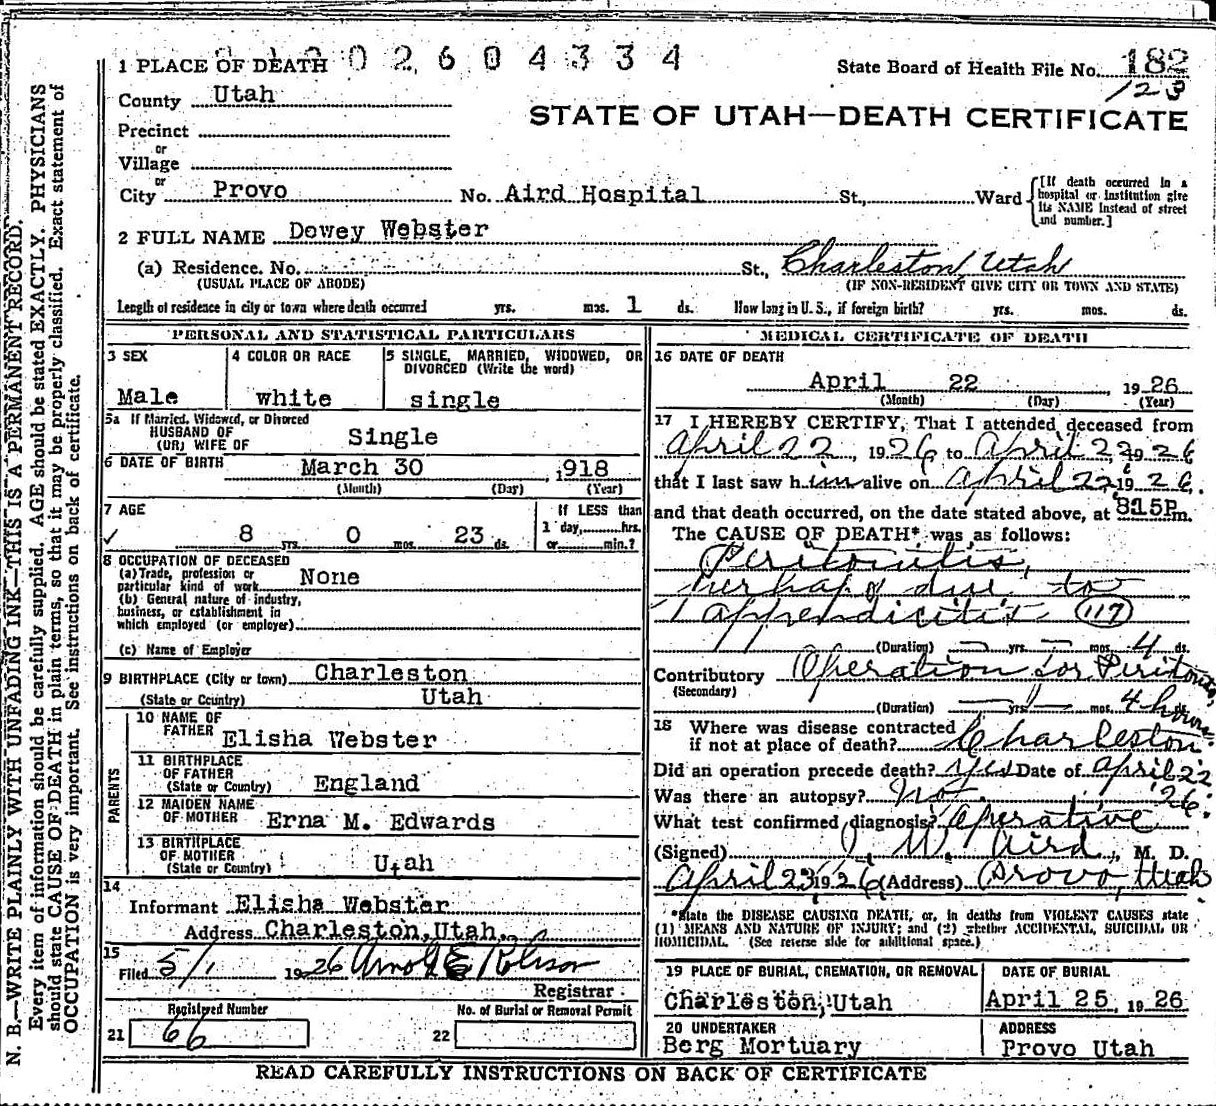 1 PLACE OF DEATH 8 1 3 0 0 2 6 0 4 3 3 4
State Board of Health File No. 182
123
County Utah
STATE OF UTAH—DEATH CERTIFICATE
Precinct
or
Village
or
City Provo No. Aird Hospital St., Ward [If death occurred in a hospital or institution give its NAME instead of street and number.]
2 FULL NAME Dewey Webster
(a) Residence. No. St., Charleston, Utah
(USUAL PLACE OF ABODE) (IF NON-RESIDENT GIVE CITY OR TOWN AND STATE)
Length of residence in city or town where death occurred yrs. mos. 1 ds. How long in U. S., if foreign birth? yrs. mos. ds.
PERSONAL AND STATISTICAL PARTICULARS
3 SEX
Male
4 COLOR OR RACE
white
5 SINGLE, MARRIED, WIDOWED, OR
DIVORCED (Write the word)
single
5a If Married, Widowed, or Divorced
HUSBAND OF
(OR) WIFE OF Single
6 DATE OF BIRTH March 30 ,918
(Month) (Day) (Year)
7 AGE
8 yrs. 0 mos. 23 ds.
If LESS than
1 day, hrs.
or min.?
8 OCCUPATION OF DECEASED
(a) Trade, profession or
particular kind of work None
(b) General nature of industry,
business, or establishment in
which employed (or employer)
(c) Name of Employer
9 BIRTHPLACE (City or town) Charleston
(State or Country) Utah
PARENTS
10 NAME OF
FATHER Elisha Webster
11 BIRTHPLACE
OF FATHER
(State or Country) England
12 MAIDEN NAME
OF MOTHER Erna M. Edwards
13 BIRTHPLACE
OF MOTHER
(State or Country) Utah
14
Informant Elisha Webster
Address Charleston, Utah.
15
Filed 5/1 1926
Registrar
Registered Number
21 66
No. of Burial or Removal Permit
22
MEDICAL CERTIFICATE OF DEATH
16 DATE OF DEATH
April 22, 1926
(Month) (Day) (Year)
17 I HEREBY CERTIFY, That I attended deceased from
April 22, 1926 to April 22, 1926
that I last saw him alive on April 22, 1926.
and that death occurred, on the date stated above, at 815P m.
The CAUSE OF DEATH* was as follows:
Peritonitis,
perhaps due to
appendicitis (117)
(Duration) yrs. mos. 4 ds.
Contributory Operation for Peritonitis,
(Secondary)
(Duration) yrs. mos. 4 hours ds.
18 Where was disease contracted
if not at place of death? Charleston
Did an operation precede death? yes Date of April 22
26.
Was there an autopsy? Not
What test confirmed diagnosis? Operative
(Signed) J. W. Aird, M. D.
April 23 1926 (Address) Provo, Utah
*State the DISEASE CAUSING DEATH, or, in deaths from VIOLENT CAUSES state
(1) MEANS AND NATURE OF INJURY; and (2) whether ACCIDENTAL, SUICIDAL OR
HOMICIDAL. (See reverse side for additional space.)
19 PLACE OF BURIAL, CREMATION, OR REMOVAL
Charleston, Utah
DATE OF BURIAL
April 25, 1926
20 UNDERTAKER
Berg Mortuary
ADDRESS
Provo Utah
READ CAREFULLY INSTRUCTIONS ON BACK OF CERTIFICATE
N. B.—WRITE PLAINLY WITH UNFADING INK—THIS IS A PERMANENT RECORD.
Every item of information should be carefully supplied. AGE should be stated EXACTLY. PHYSICIANS
should state CAUSE OF DEATH in plain terms, so that it may be properly classified. Exact statement of
OCCUPATION is very important. See instructions on back of certificate.